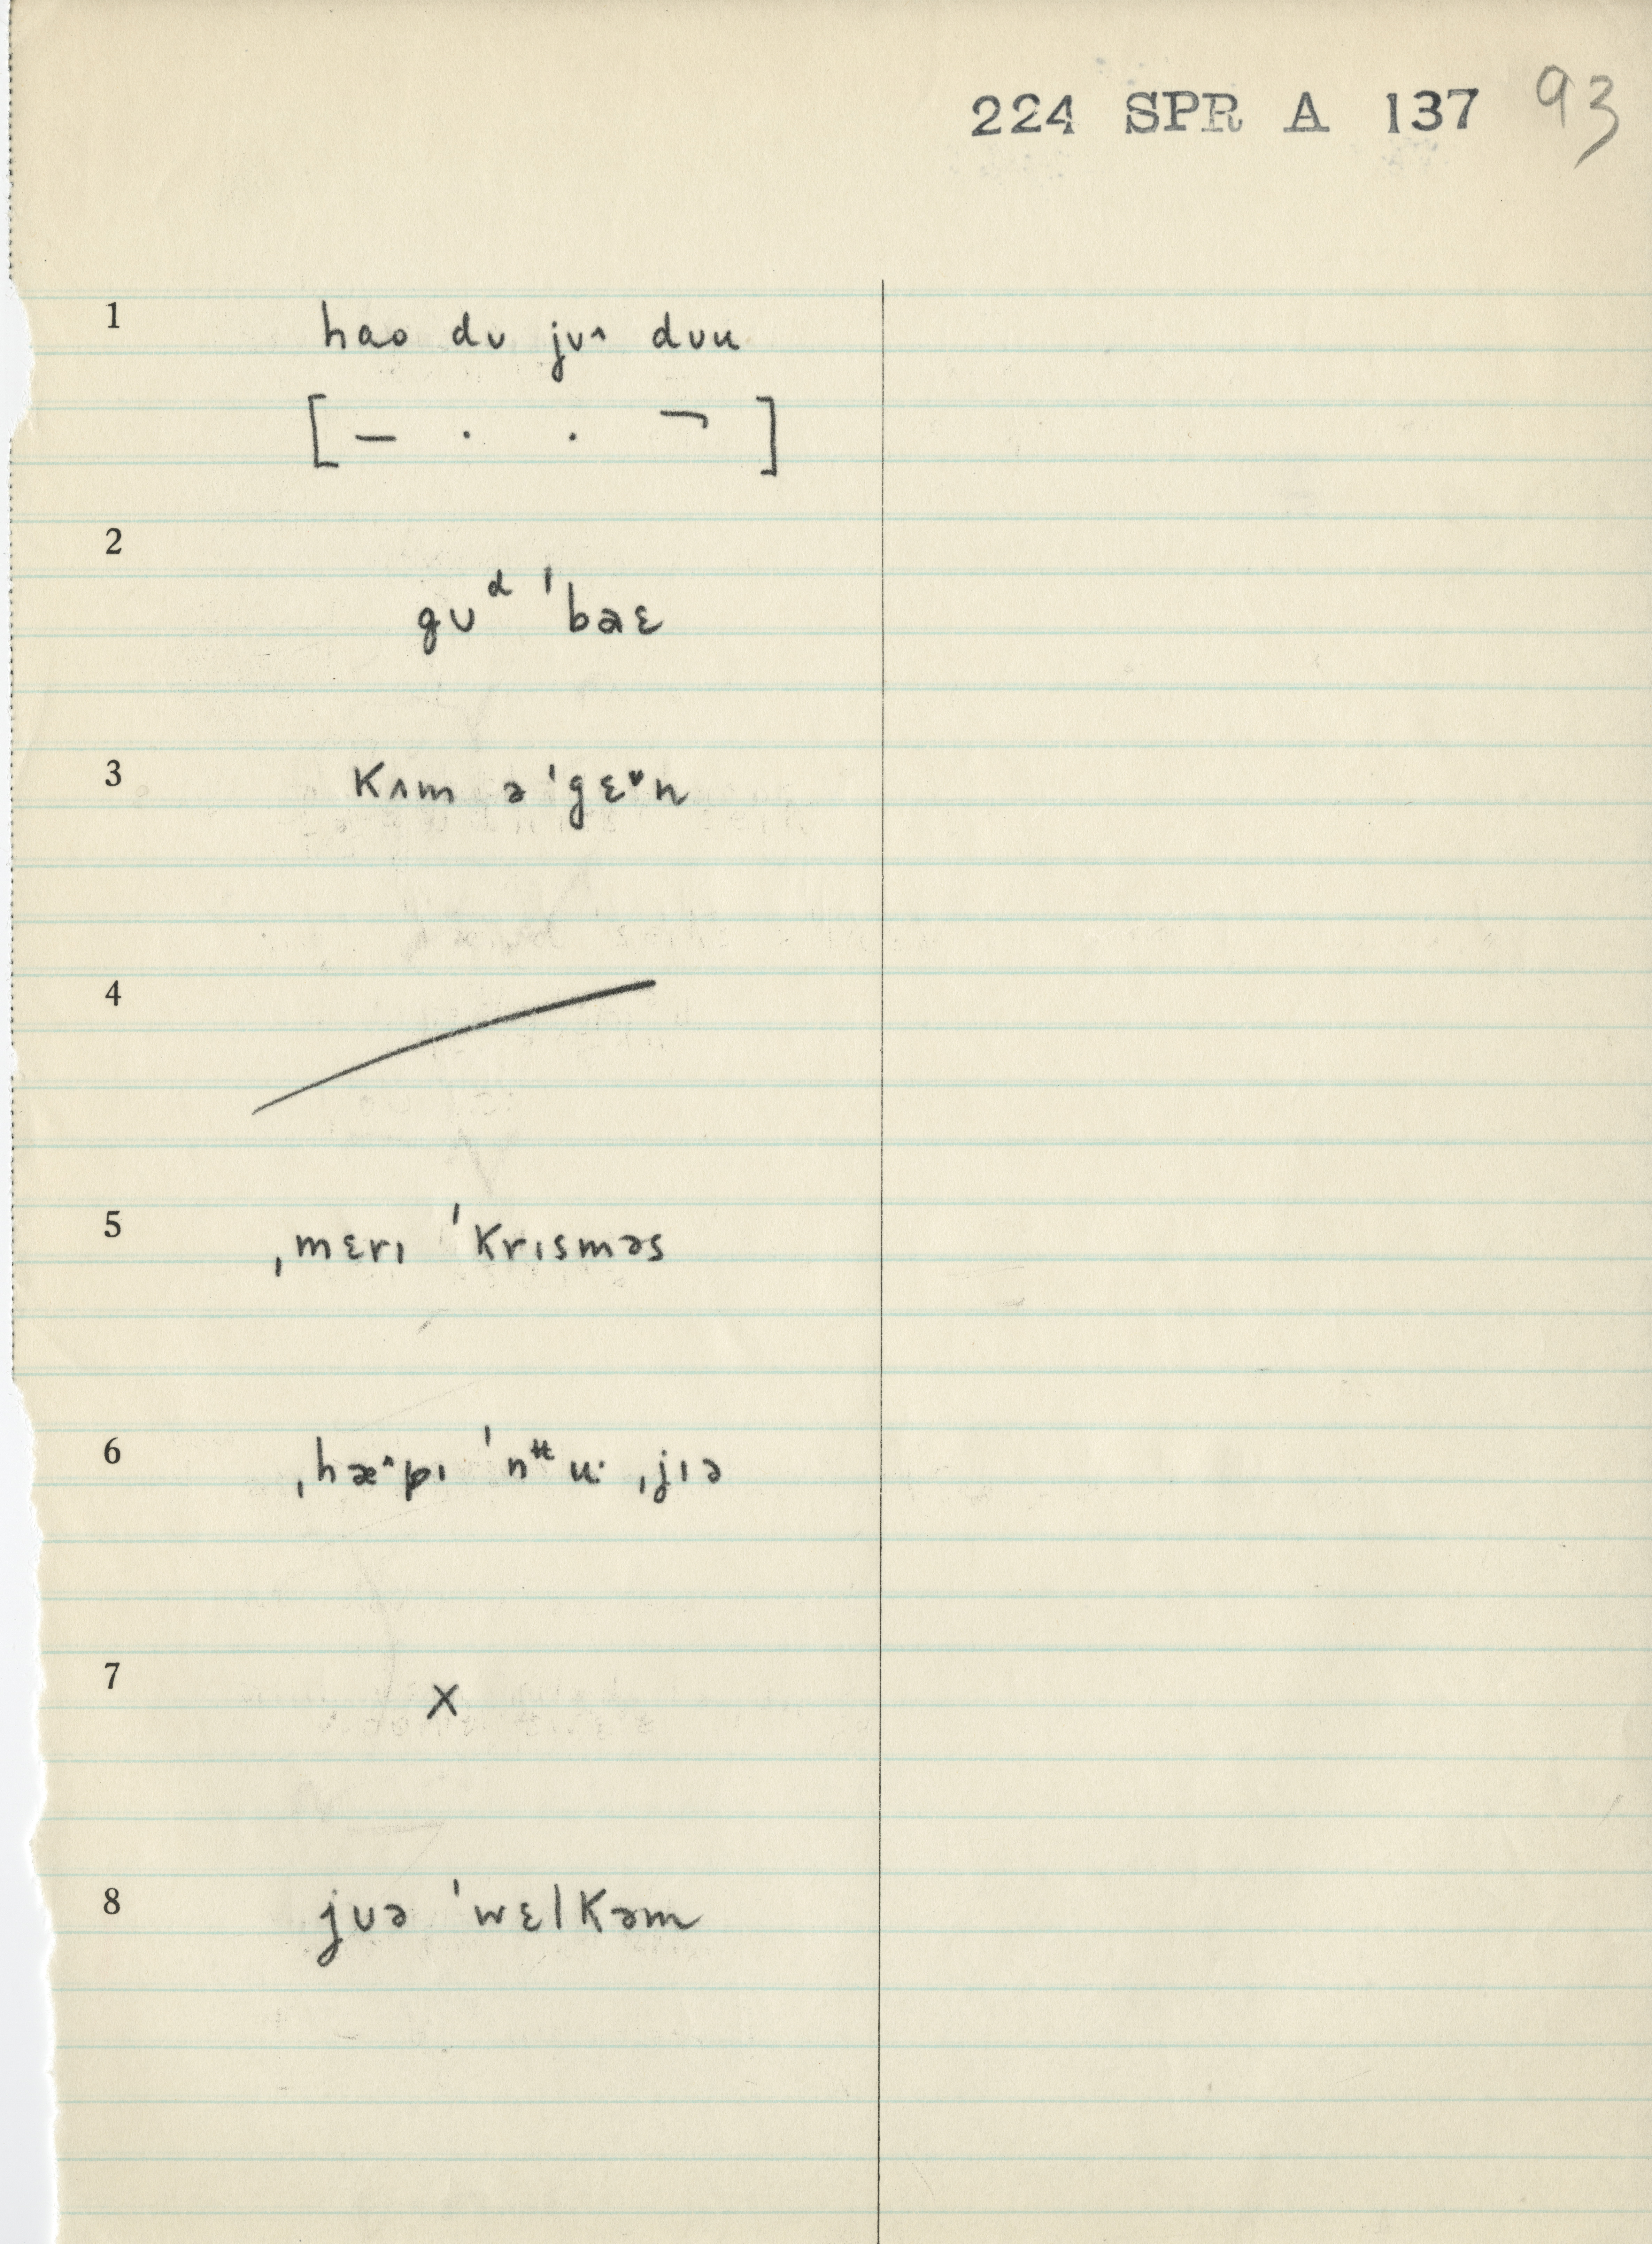 224 SPR A 137 93
1 hɑo dʊ jʊ˄ dʊu
[— . . ¬]
2 gʊᵈ ˈbaɛ
3 kʌm ə ˈgɛ˅n
4
5 ˌmɛrɪ ˈkrɪsməs
6 ˌhæ˄pɪ ˈnᵻu· ˌjɪə
7 ×
8 jʊə ˈwɛlkəm